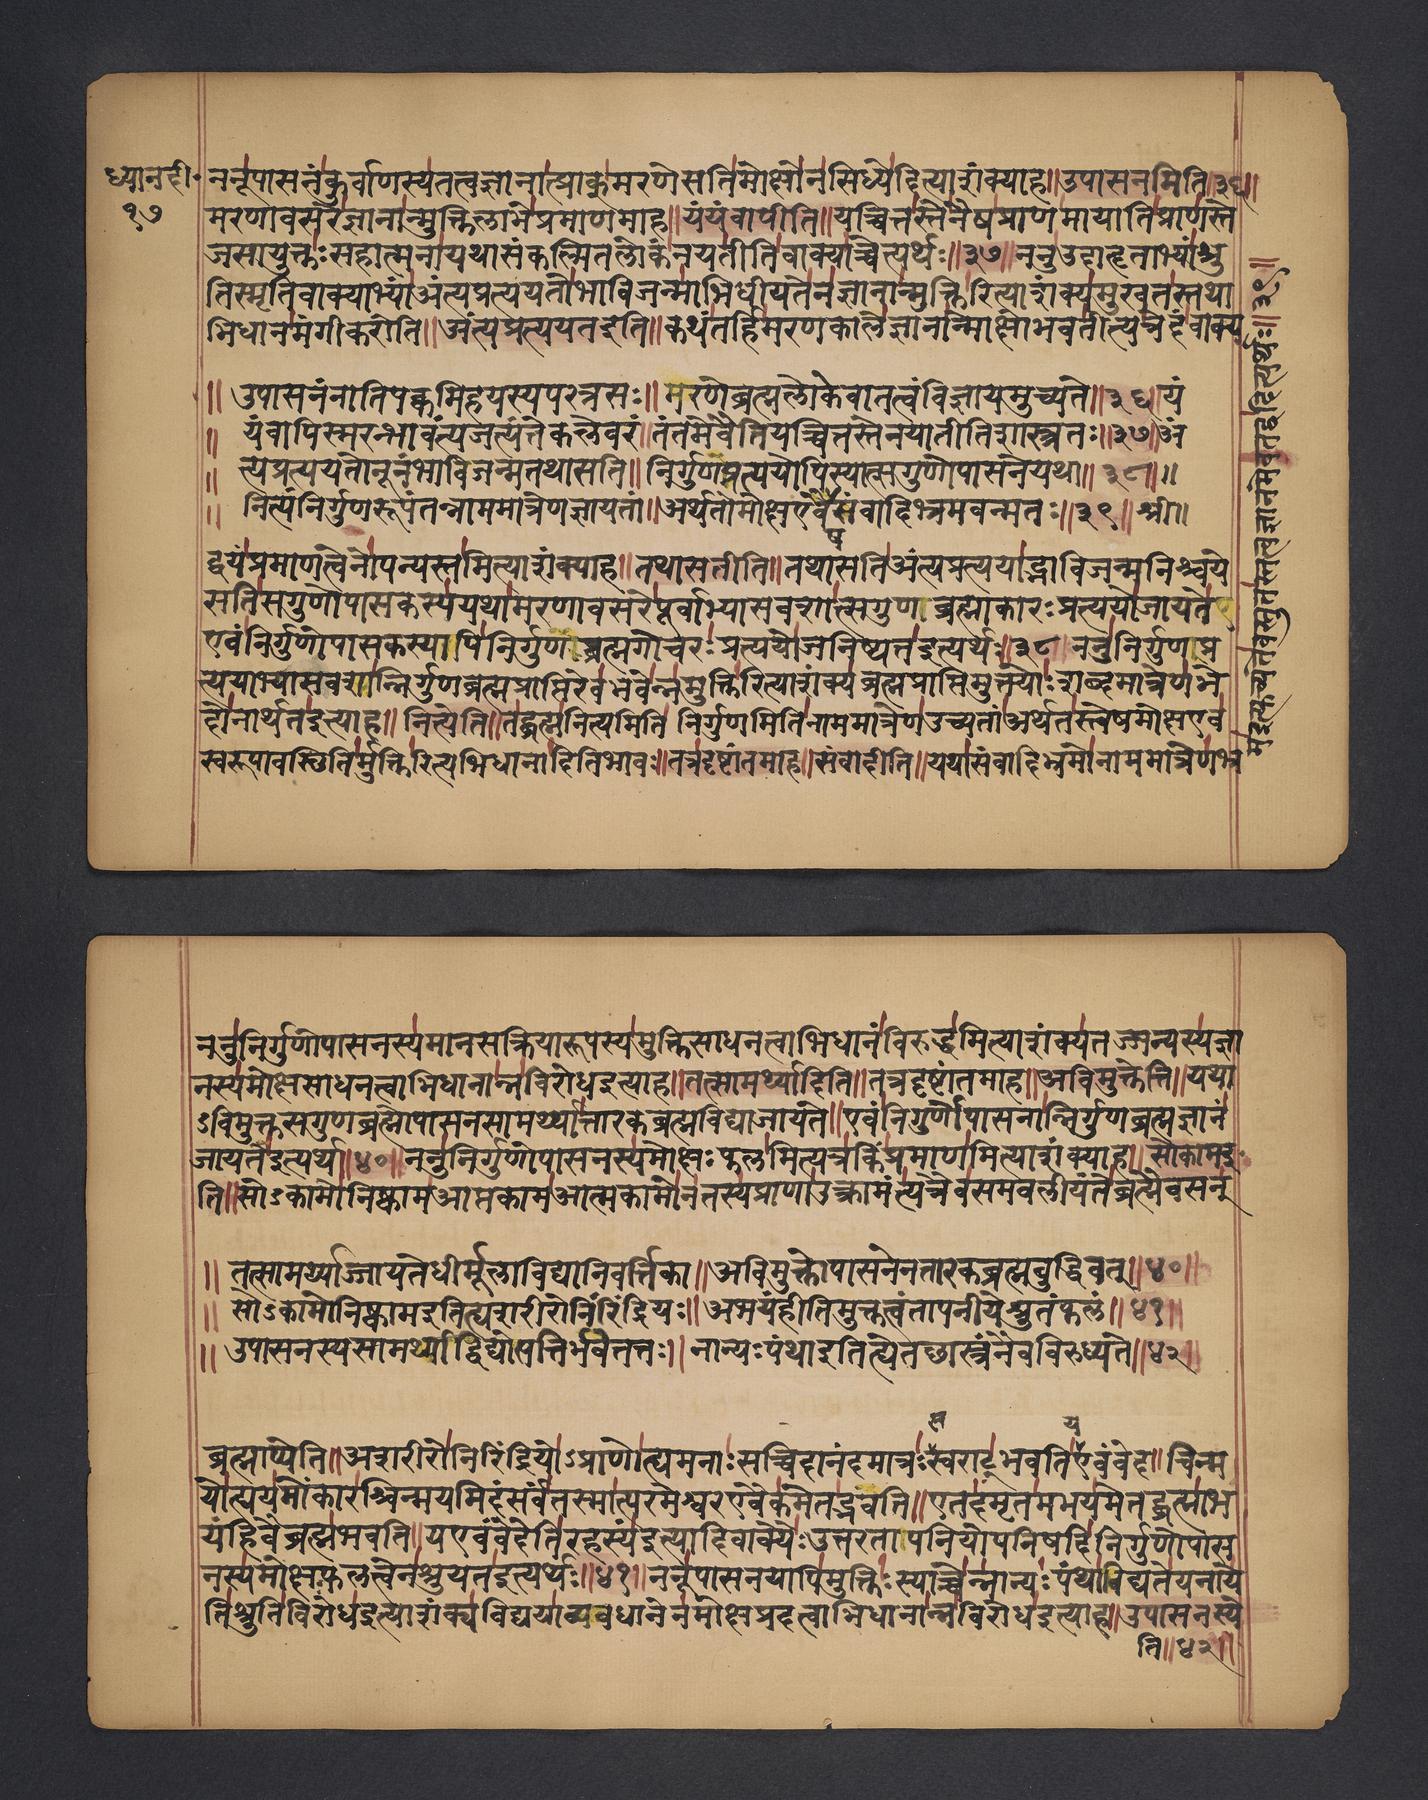 ध्यानदी॰
१७
ननूपासनंकुर्वाणस्यतत्वज्ञानात्प्राक्मरणेसतिमोक्षोनसिध्येदित्याशंक्याह॥उपासनमिति॥३६॥
मरणावसरेज्ञानान्मुक्तिलाभेप्रमाणमाह॥यंयंवापीति॥यच्चित्तस्तेनैषप्राणमायातिप्राणस्ते
जसायुक्तःसहात्मनायथासंकल्पितंलोकंनयतीतिवाक्याच्चेत्यर्थः॥३७॥ननुउदाहृताभ्यांश्रु
तिस्मृतिवाक्याभ्यांअंत्यप्रत्ययतोभाविजन्माभिधीयतेनज्ञानान्मुक्तिरित्याशंक्यमुखतस्तथा
भिधानमंगीकरोति॥अंत्यप्रत्ययतइति॥कथंतर्हिमरणकालेज्ञानन्मोक्षोभवतीत्यत्रेदंवाक्य
॥उपासनंनातिपक्वमिहयस्यपरत्रसः॥मरणेब्रह्मलोकेवातत्वंविज्ञायमुच्यते॥३६॥यं
॥यंवापिस्मरन्भावंत्यजत्यंतेकलेवरं॥तंतमेवैतियच्चित्तस्तेनयातीतिशास्त्रतः॥३७॥अं
॥त्यप्रत्ययतोनूनंभाविजन्मतथासति॥निर्गुणप्रत्ययोपिस्यात्सगुणोपासनेयथा॥३८॥॥
॥नित्यंनिर्गुणरूपंतन्नाममात्रेणज्ञायतां॥अर्थतोमोक्षएवैसंवादिभ्रमवन्मतः॥३९॥श्री॥
ष
द्वयंप्रमाणत्वेनोपन्यस्तमित्याशंक्याह॥तथासतीति॥तथासतिअंत्यप्रत्ययाद्भाविजन्मनिश्चये
सतिसगुणोपासकस्ययथामरणावसरेपूर्वाभ्यासवशात्सगुणब्रह्माकारःप्रत्ययोजायते
एवंनिर्गुणोपासकस्यापिनिर्गुणब्रह्मगोचरःप्रत्ययोजनिष्यतइत्यर्थः॥३८॥ननुनिर्गुणप्र
त्ययाभ्यासवशान्निर्गुणब्रह्मप्राप्तिरेवभवेन्नमुक्तिरित्याशंक्यब्रह्मप्राप्तिमुक्त्योःशब्दमात्रेणभे
दोनार्थतइत्याह॥नित्येति॥तद्ब्रह्मनित्यमितिनिर्गुणमितिनाममात्रेणउच्यतांअर्थतस्त्वेषमोक्षएव
स्वरूपावस्थितिर्मुक्तिरित्यभिधानादितिभावः॥तत्रदृष्टांतमाह॥संवादीति॥यथासंवादिभ्रमोनाममात्रेणभ्र
ननुनिर्गुणोपासनस्यमानसक्रियारूपस्यमुक्तिसाधनत्वाभिधानंविरुद्धमित्याशंक्यतज्जन्यस्यज्ञा
नस्यमोक्षसाधनत्वाभिधानान्नविरोधइत्याह॥तत्सामर्थ्यादिति॥तत्रदृष्टांतमाह॥अविमुक्तेति॥यथा
ऽविमुक्तसगुणब्रह्मोपासनसामर्थ्यात्तारकब्रह्मविद्याजायते॥एवंनिगुर्णोपासनान्निर्गुणब्रह्मज्ञानं
जायतेइत्यर्थः॥४०॥ननुनिर्गुणोपासनस्यमोक्षःफलमित्यत्रकिंप्रमाणमित्याशंक्याह॥सोकामइ॰
ति॥सोऽकामोनिष्कामआप्तकामआत्मकामोनतस्यप्राणाउत्क्रामंत्यत्रैवसमवलीयंतेब्रह्मैवसन्
॥तत्सामर्थ्याज्जायतेधीर्मूलाविद्यानिवर्त्तिका॥अविमुक्तोपासनेनतारकब्रह्मबुद्धिवत्॥४०॥
॥सोऽकामोनिष्कामइतिह्यशरीरोनिरिंद्रियः॥अभयंहीतिमुक्तत्वंतापनीयेश्रुतंफलं॥४१॥
॥उपासनस्यसामर्थ्याद्विद्योत्पत्तिर्भवेत्ततः॥नान्यःपंथाइतिह्येतछास्त्रंनैवविरुध्यते॥४२॥
य
ब्रह्माप्येति॥अशरीरोनिरिंद्रियोऽप्राणोह्यमनाःसच्चिदानंदमात्रःस्वराट्भवतिएवंवेद॥चिन्म
योह्ययमोंकारश्चिन्मयमिदंसर्वंतस्मात्परमेश्वरएवैकमेतद्भवति॥एतदमृतमभयमेतद्ब्रह्माभ
यंहिवैब्रह्मभवति॥यएवंवेदेतिरहस्यंइत्यादिवाक्येःउत्तरतापनियोपनिषदिनिर्गुणोपास
नस्यमोक्षफलत्वेनश्रुयतइत्यर्थः॥४१॥ननूपासनयापिमुक्तिःस्याच्चेन्नान्यःपंथाविद्यतेयनाये
तिश्रुतिविरोधइत्याशंक्यविद्ययाव्यवधानेनमोक्षप्रदत्वाभिधानान्नविरोधइत्याह॥उपासनस्ये
ति॥४२॥